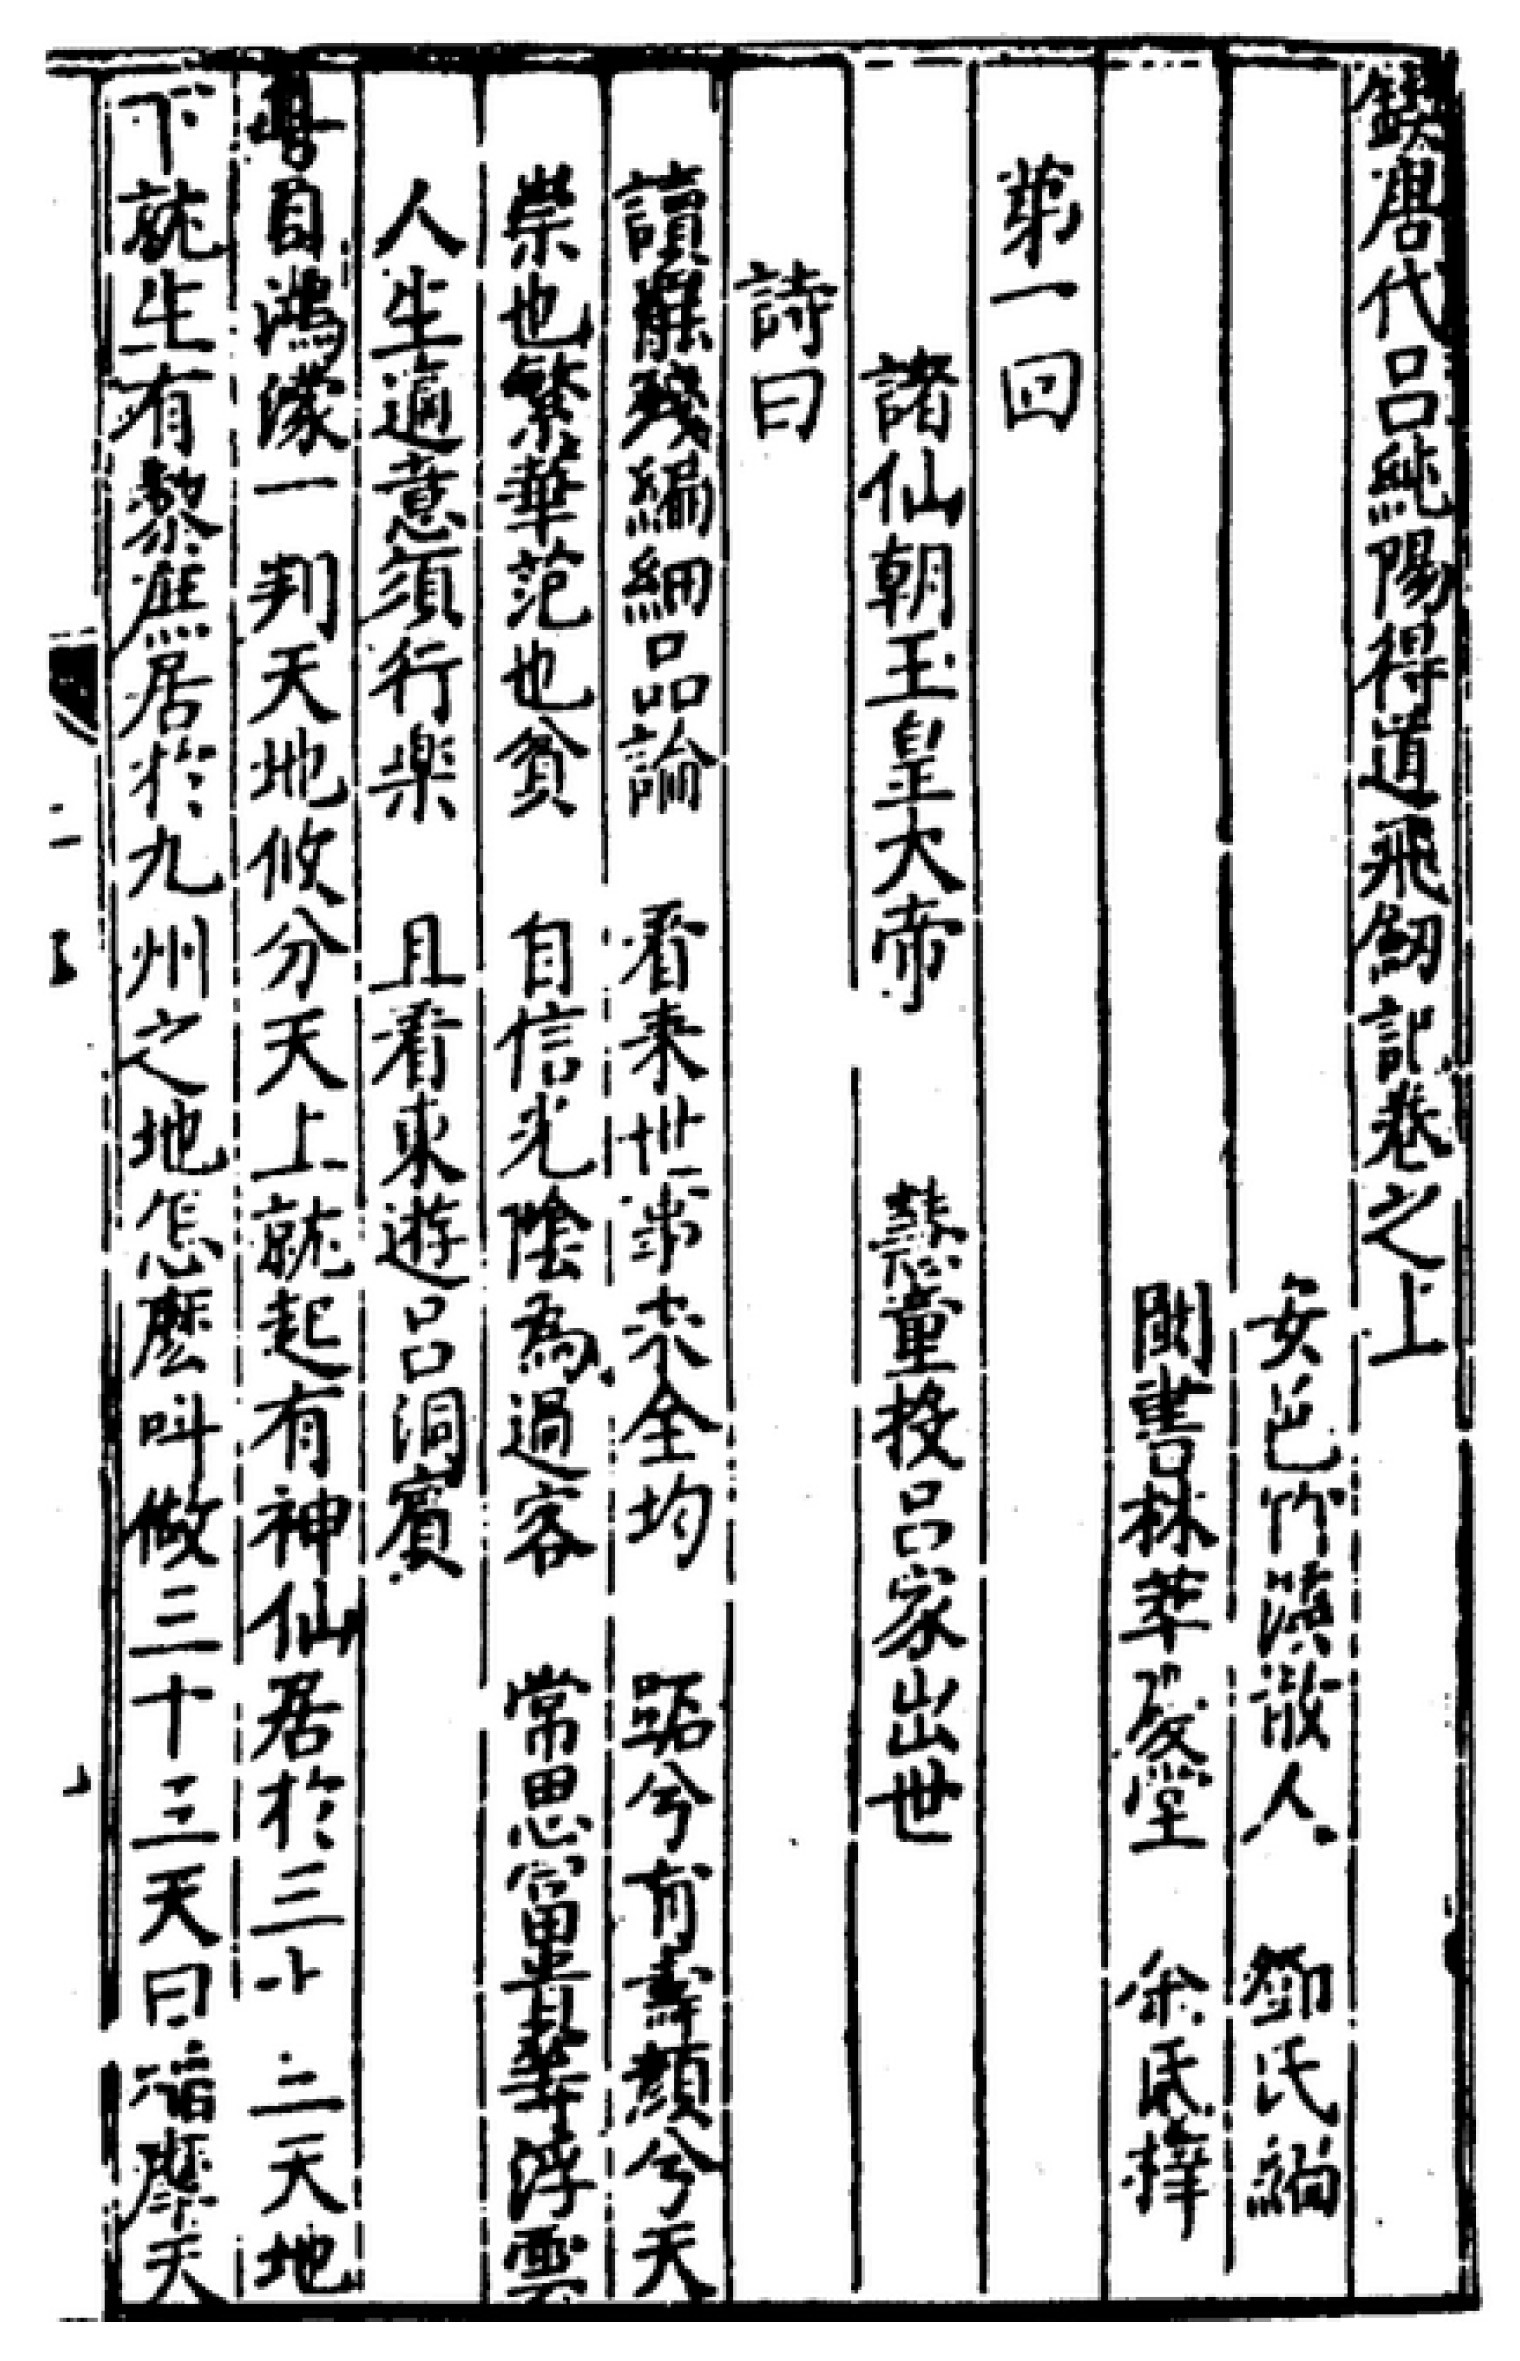 鍥唐代呂純陽得道飛劔記卷之上
安邑竹溪散人 鄧氏編
閩書林萃慶堂 余氏梓
第一回
諸仙朝玉皇大帝 慧童投呂家出世
詩曰
讀罷殘編細品論 看來世事未全均 跖兮有壽顏兮夭
崇也繁華范也貧 自信光陰為過客 常思富貴等浮雲
人生適意須行楽 且看東遊呂洞賓
粤自鴻濛一判天地攸分天上就起有神仙居於三十三天地
下就生有黎庶居於九州之地怎麼叫做三十三天曰 摩天